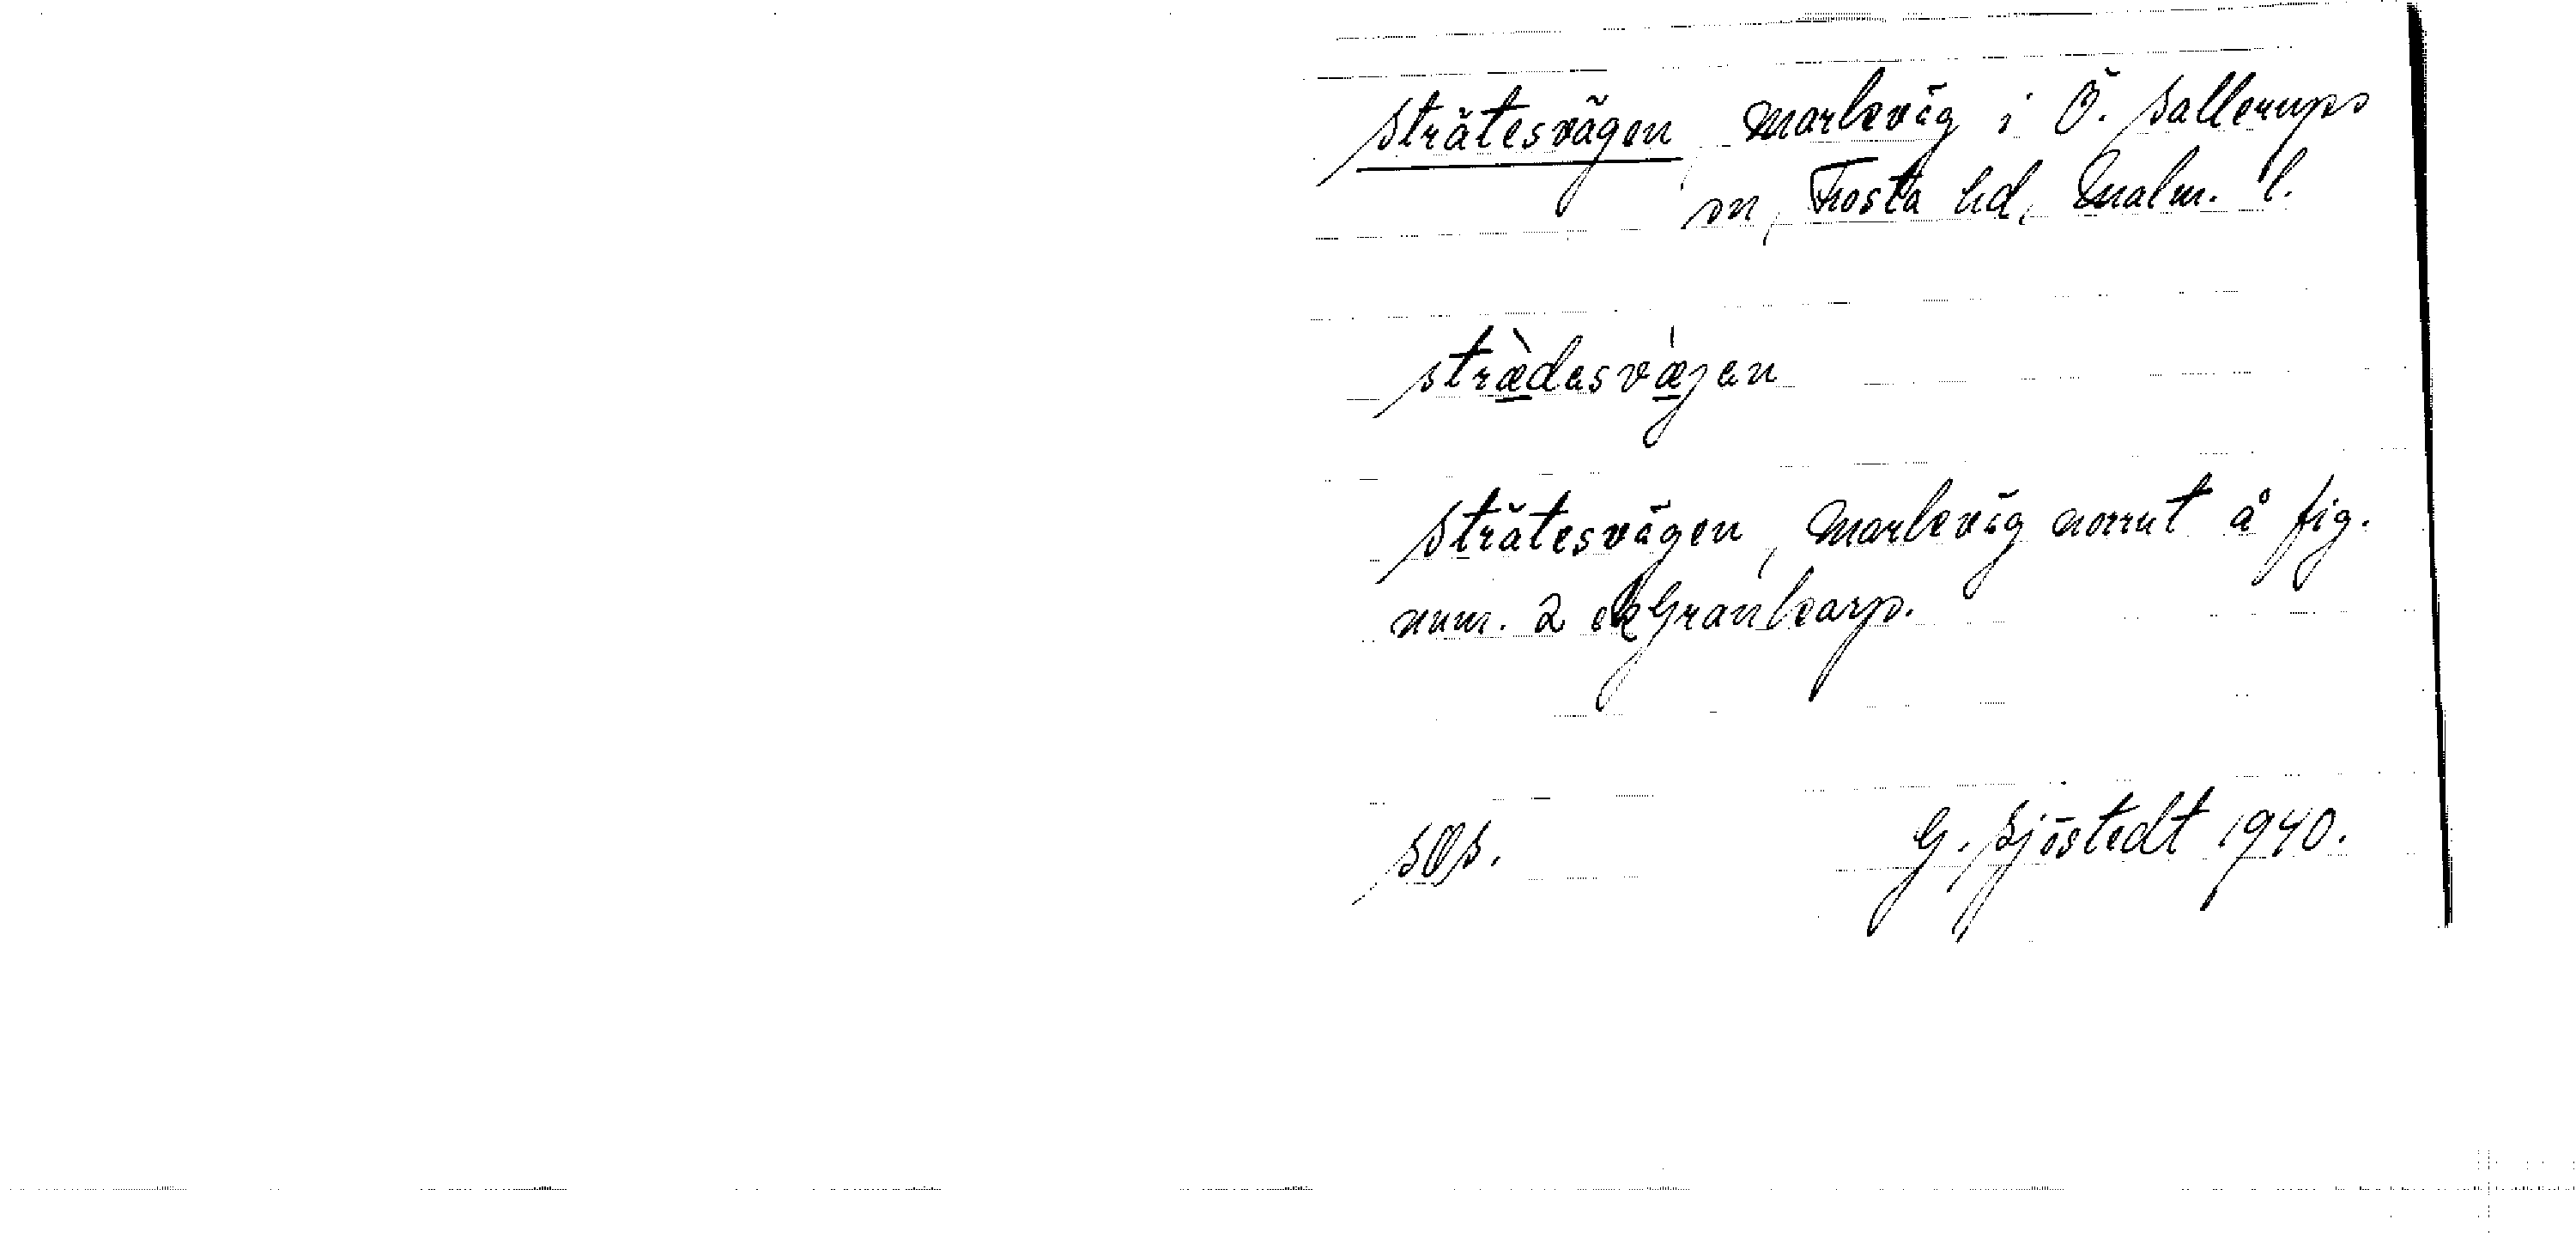 Strätesvägen, markväg i Ö. Sallerups
sn, Frosta hd, Malm. l.
strædesvæjen
Strätesvägen, markväg norrut å fig.
num. 2 Grankarp.
SOS. G. Sjöstedt 1940.